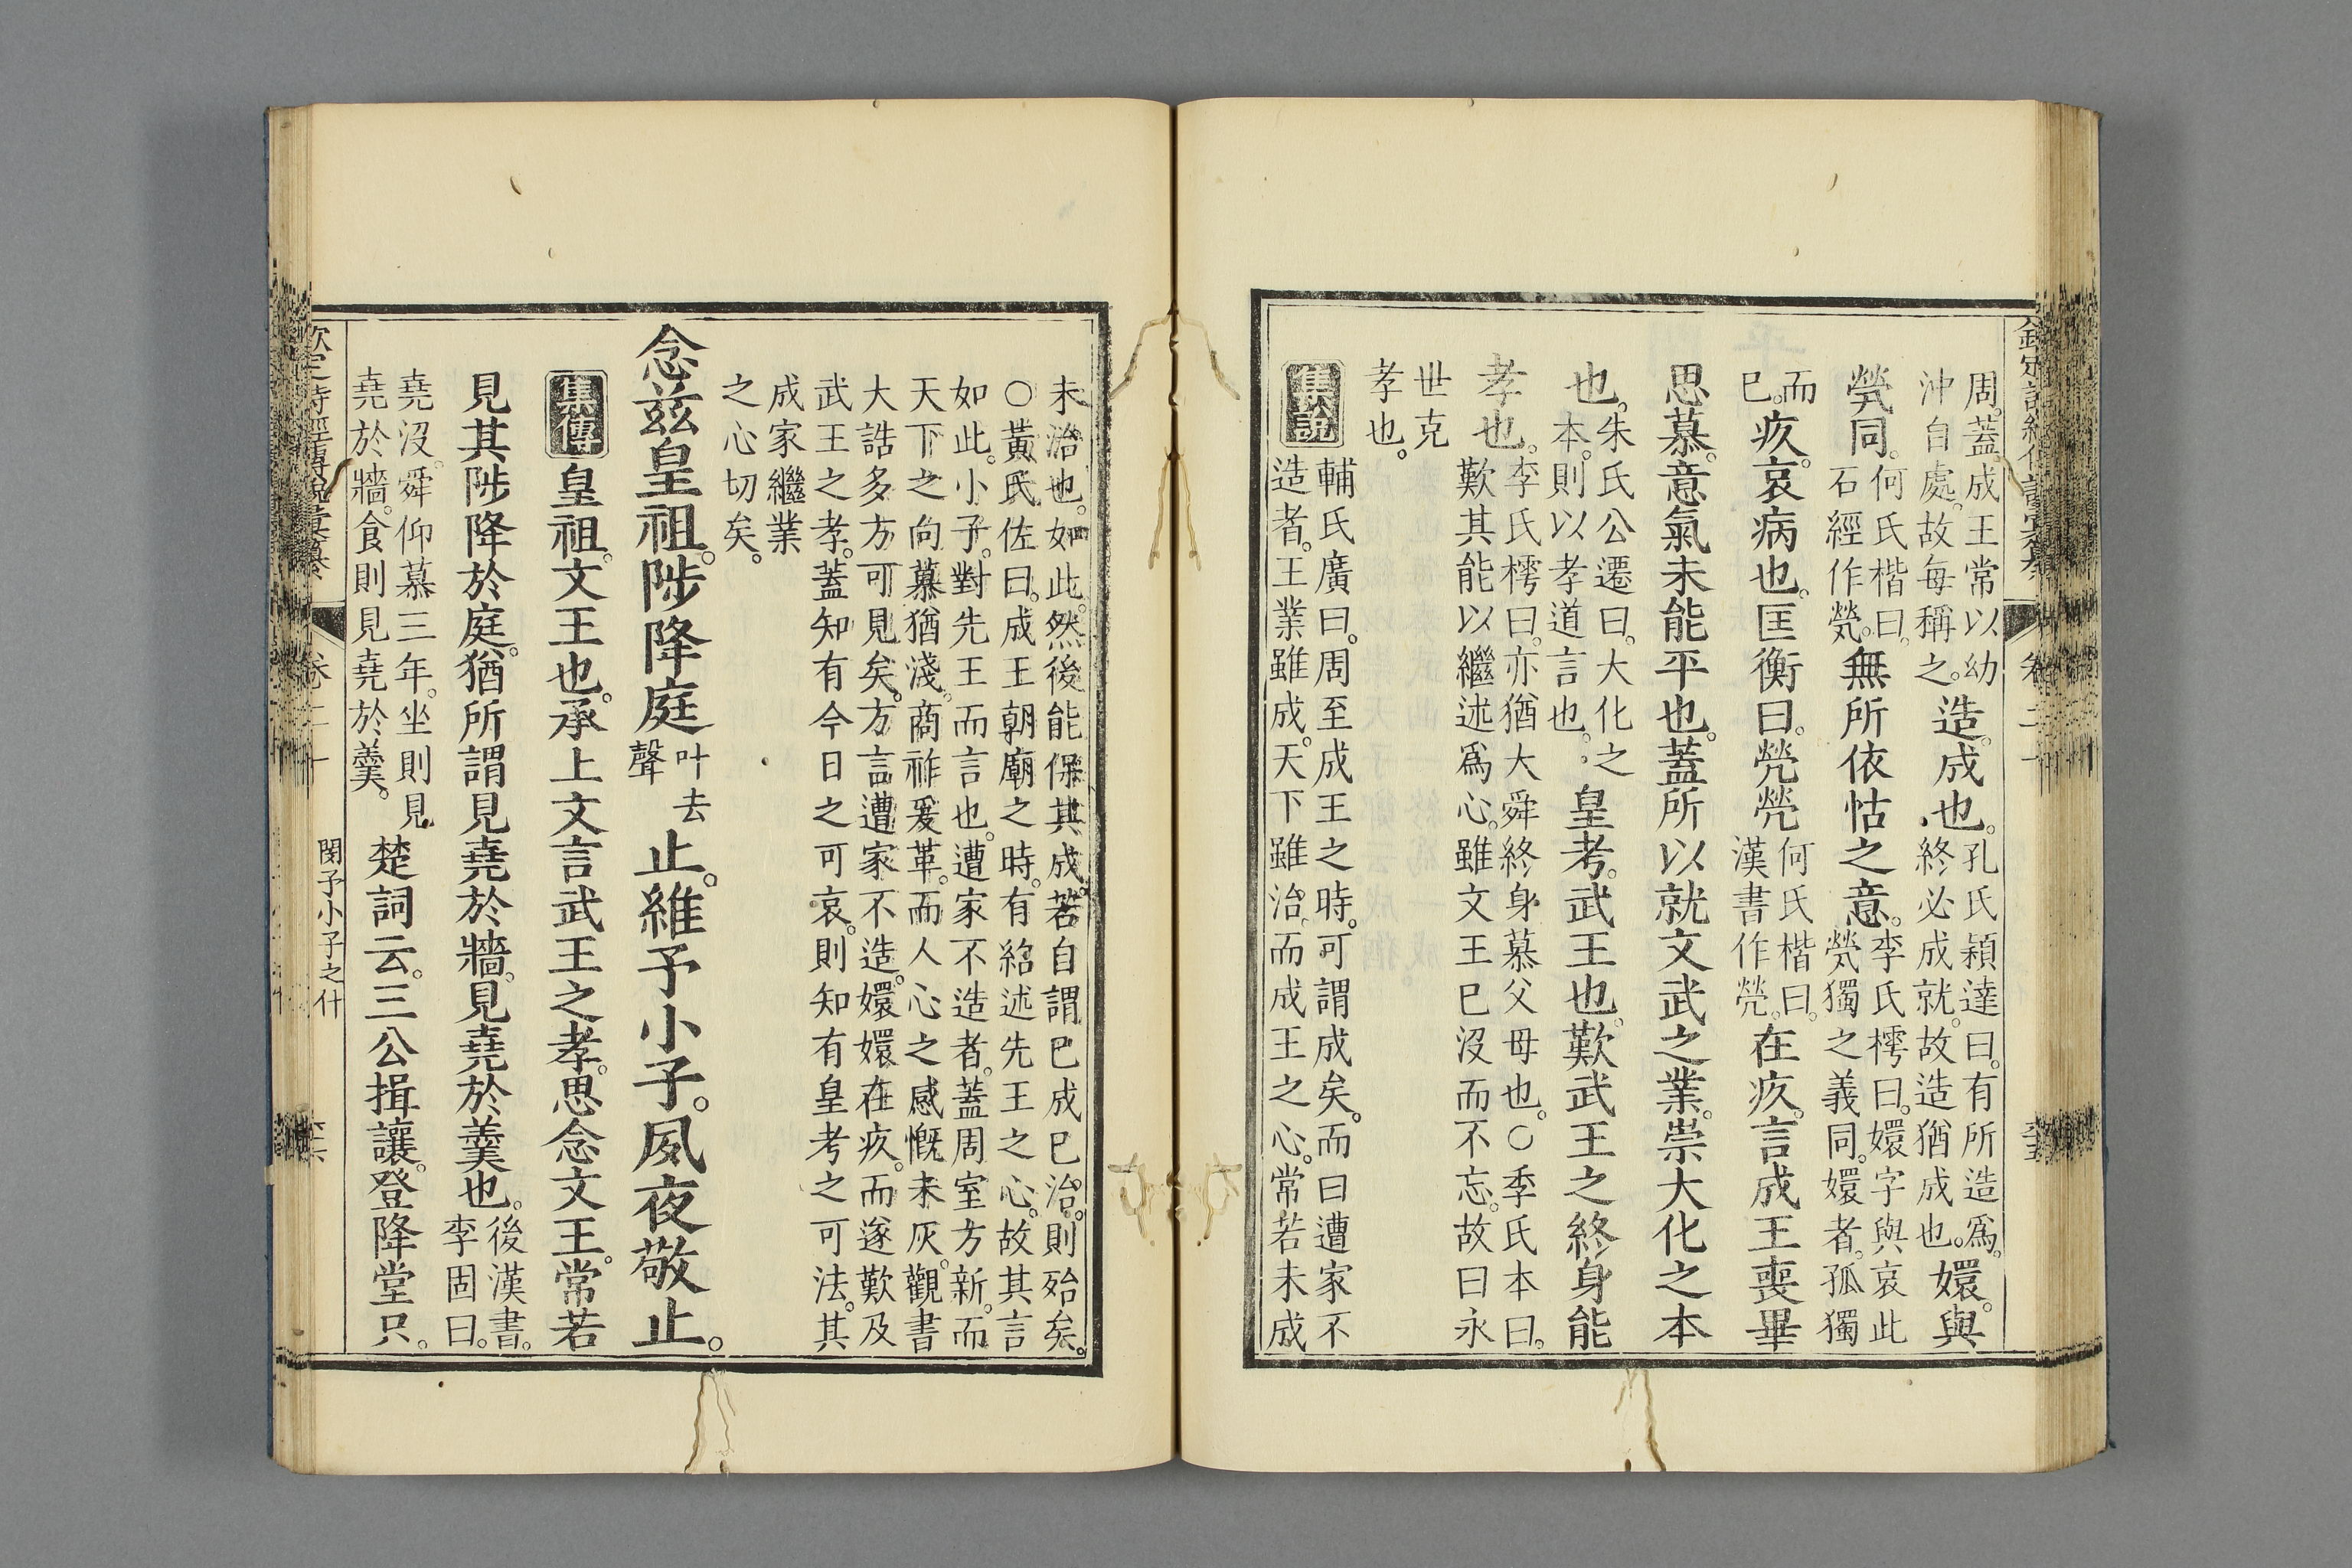 欽定詩經傳說彙纂 卷二十一
周。蓋成王常以幼沖自處。故每稱之。造。成也。孔氏穎達曰。有所造爲。終必成就。故造猶成也。嬛。與
煢同。何氏楷曰。石經作煢。無所依怙之意。李氏樗曰。嬛字與哀此煢獨之義同。嬛者。孤獨
而已。疚。哀病也。匡衡曰。煢煢何氏楷曰。漢書作煢。在疚。言成王喪畢
思慕。意氣未能平也。蓋所以就文武之業。崇大化之本
也。朱氏公遷曰。大化之本。則以孝道言也。皇考。武王也。歎武王之終身能
孝也。李氏樗曰。亦猶大舜終身慕父母也。○季氏本曰。歎其能以繼述爲心。雖文王已沒而不忘。故曰永
世克孝也。
集說
輔氏廣曰。周至成王之時。可謂成矣。而曰遭家不
造者。王業雖成。天下雖治。而成王之心。常若未成
未治也。如此。然後能保其成。若自謂已成已治。則殆矣。
○黃氏佐曰。成王朝廟之時。有紹述先王之心。故其言
如此。小子。對先王而言也。遭家不造者。蓋周室方新。而
天下之向慕猶淺。商祚爰革。而人心之感慨未灰。觀書
大誥多方可見矣。方言遭家不造。嬛嬛在疚。而遂歎及
武王之孝。蓋知有今日之可哀。則知有皇考之可法。其
成家繼業
之心切矣。
念茲皇祖。陟降庭叶去聲止。維予小子。夙夜敬止。
集傳
皇祖。文王也。承上文言武王之孝。思念文王。常若
見其陟降於庭。猶所謂見堯於牆。見堯於羹也。後漢書。李固曰。
堯沒。舜仰慕三年。坐則見堯於牆。食則見堯於羹。楚詞云。三公揖讓。登降堂只。
欽定詩經傳說彙纂 卷二十一 閔予小子之什